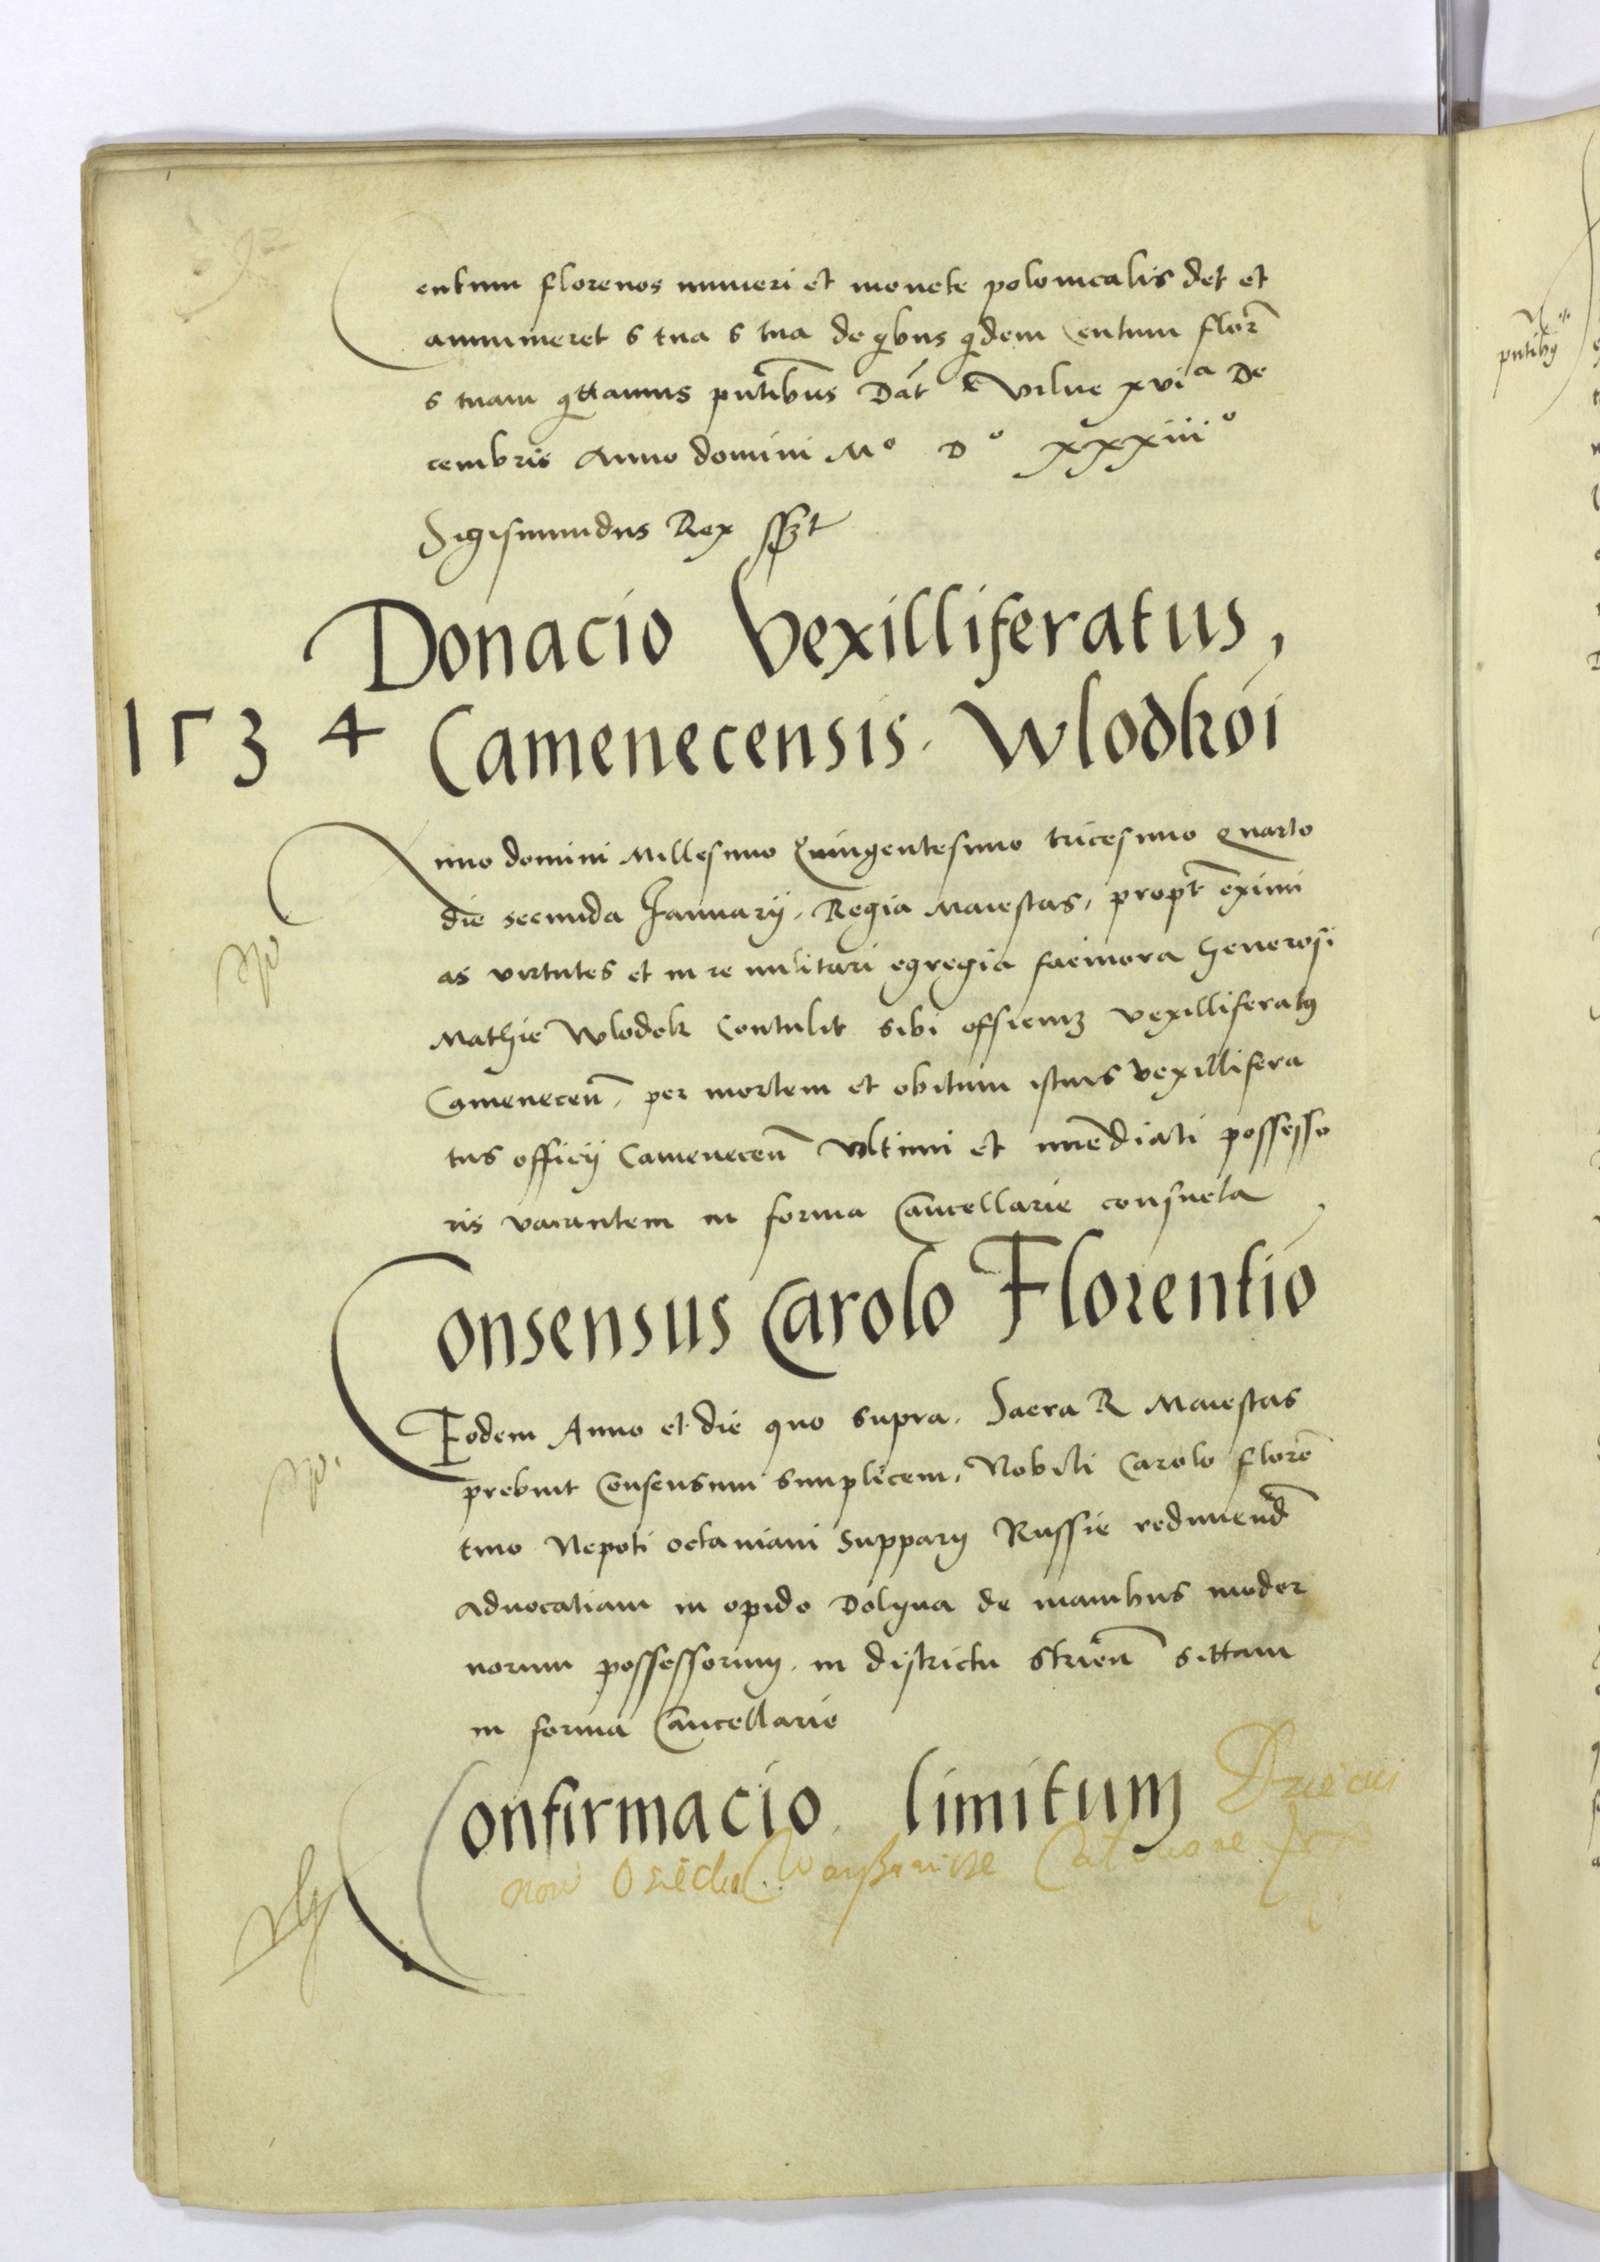 Centum florenos numeri et monete polonicalis det et
annumeret s tua s tua de qibus qidem Centum flor
s tuam qittamus pntibus Dat Vilne xvi a De
cembris Anno domini M o D o xxxiii o
Sigismundus Rex sszt
Donacio Vexilliferatus,
1534 Camenecensis. Wlodkoi
Anno domini Millesimo Quingentesimo tricesimo Quarto
die secunda Januarij, Regia Maiestas, propt eximi
as virtutes et in re militari egregia facinora Generosi
Mathie Wlodek Contulit sibi officium vexilliferatus
Camenecen, per mortem et obitum istius vexillifera
tus officij Camenecen Vltimi et immediati possesso
ris vacantem in forma Cancellarie consueta
Consensus Carolo Florentio
Eodem Anno et die quo supra. Sacra R Maiestas
prebuit Consensum simplicem, Nobili Carolo floren
tino Nepoti octaviani Supparij Russie redimend
advocatiam in opido Dolyna de manibus moder
norum possessorum, in districtu Strien sittam
in forma Cancellarie
Confirmacio limitum